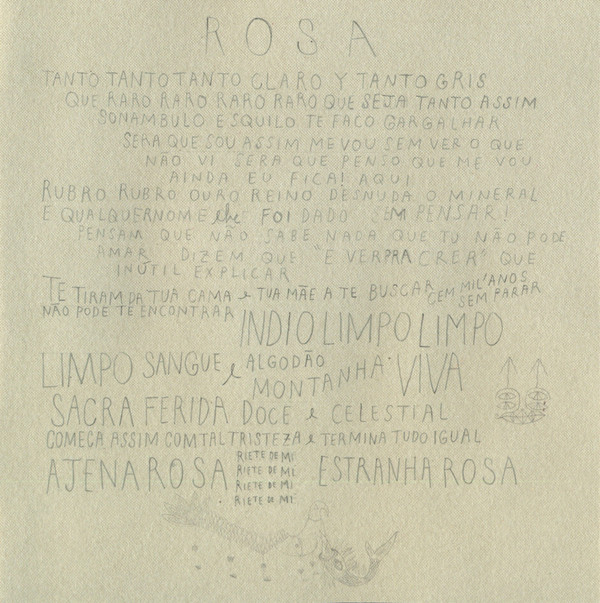 ROSA
TANTO TANTO TANTO CLARO Y TANTO GRIS
QUE RARO RARO RARO RARO QUE SEJA TANTO ASSIM
SONAMBULO ESQUILO TE FACO GARGALHAR
SERA QUE SOU ASSIM ME VOU SEM VER O QUE
NÃO VI SERA QUE PENSO QUE ME VOU
AINDA EU FICA! AQUI
RUBRO RUBRO OURO REINO DESNUDA O MINERAL
E QUALQUER NOME lhe FOI DADO SEM PENSAR!
PENSAM QUE NÃO SABE NADA QUE TU NÃO PODE
AMAR DIZEM QUE "E VER PRA CRER" QUE
INÚTIL EXPLICAR
TE TIRAM DA TUA CAMA e TUA MÃE A TE BUSCAR CEM MIL'ANOS SEM PARAR
NÃO PODE TE ENCONTRAR INDIO LIMPO LIMPO
LIMPO SANGUE e ALGODÃO MONTANHA VIVA
SACRA FERIDA DOCE e CELESTIAL
COMEÇA ASSIM COM TAL TRISTEZA e TERMINA TUDO IGUAL
AJENA ROSA RIETE DE MI ESTRANHA ROSA
RIETE DE MI
RIETE DE MI
RIETE DE MI